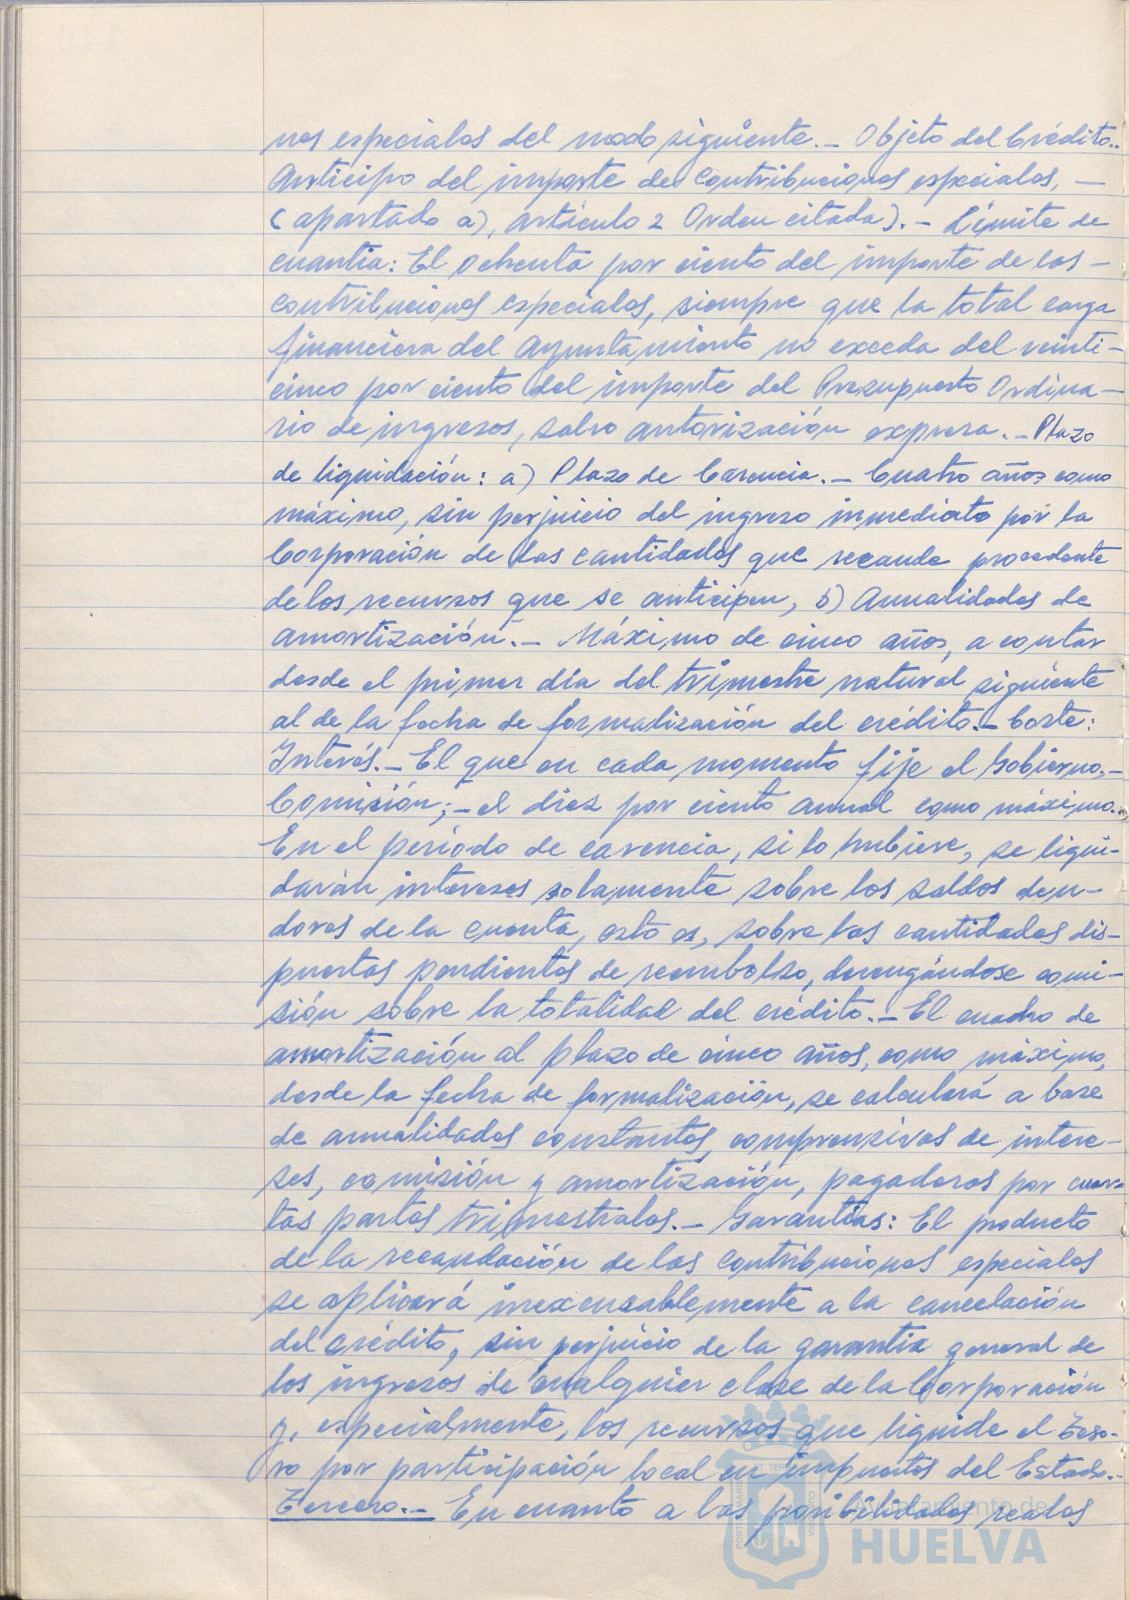 nes especiales del modo siguiente.- Objeto del Crédito.-
Anticipo del importe de contribuciones especiales, -
(apartado a), artículo 2 Orden citada).- Límite de
cuantía: El ochenta por ciento del importe de las -
contribuciones especiales, siempre que la total carga
financiera del Ayuntamiento no exceda del veinti-
cinco por ciento del importe del Presupuesto Ordina-
rio de ingresos, salvo autorización expresa.- Plazo
de liquidación: a) Plazo de Carencia.- Cuatro años como
máximo, sin perjuicio del ingreso inmediato por la
Corporación de las cantidades que recaude procedente
de los recursos que se anticipen, b) Anualidades de
amortización.- Máximo de cinco años, a contar
desde el primer día del trimestre natural siguiente
al de la fecha de formalización del crédito.- Coste:
Interés.- El que en cada momento fije el Gobierno.-
Comisión;- el diez por ciento anual como máximo.-
En el período de carencia, si lo hubiere, se liqui-
darán intereses solamente sobre los saldos deu-
dores de la cuenta, esto es, sobre las cantidades dis-
puestas pendientes de reembolso, devengándose comi-
sión sobre la totalidad del crédito.- El cuadro de
amortización al plazo de cinco años, como máximo,
desde la fecha de formalización, se calculará a base
de anualidades constantes, comprensivas de intere-
ses, comisión y amortización, pagaderos por cuar-
tas partes trimestrales.- Garantías: El producto
de la recaudación de las contribuciones especiales
se aplicará inexcusablemente a la cancelación
del crédito, sin perjuicio de la garantía general de
los ingresos de cualquier clase de la Corporación
y, especialmente, los recursos que liquide el Teso-
ro por participación local en impuestos del Estado.-
Tercero.- En cuanto a las posibilidades reales
Ayuntamiento de
HUELVA